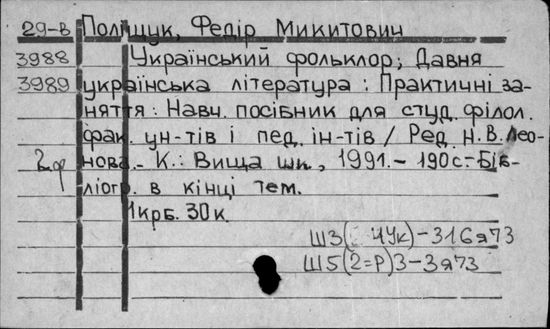 29-В Поліщук, Федір Микитович
3988 Український фольклор; Давня
3989 українська література : Практичні за-
няття : Навч. посібник для студ. філол.
фак. ун-тів і пед. ін-тів / Ред. Н.В. Лео-
нова. - К.: Вища шк., 1991. - 190 с. - Біб-
ліогр. в кінці тем.
1 крб. 30 к.
Ш3( 4Ук)-316я73
Ш5(2=Р)3-3я73